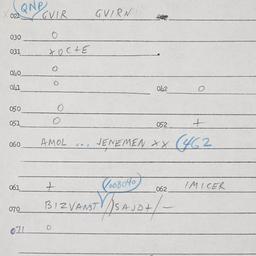 QNP
022 GVIR GVIRN
030 0
031 XOCTE
040 0
041 0 042 0
050 0
051 0 052 +
060 AMOL ... JENEMEN XX (462
061 + 062 IMICER
070 BIZVANST /SAJD+/-
071 0